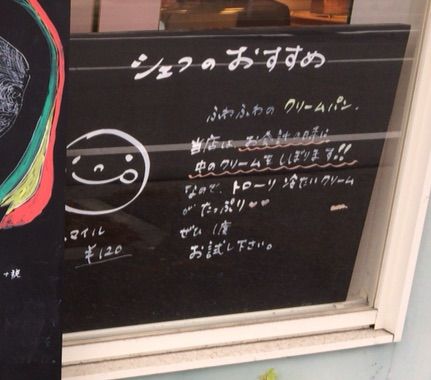 シェフのおすすめ
ふわふわの クリームパン.
当店は、お会計の時に
中のクリームをしぼります!!
なので、トローリ 冷たいクリーム
がたっぷり♥♥
ぜひ 1度
お試し下さい。
スマイル
¥120